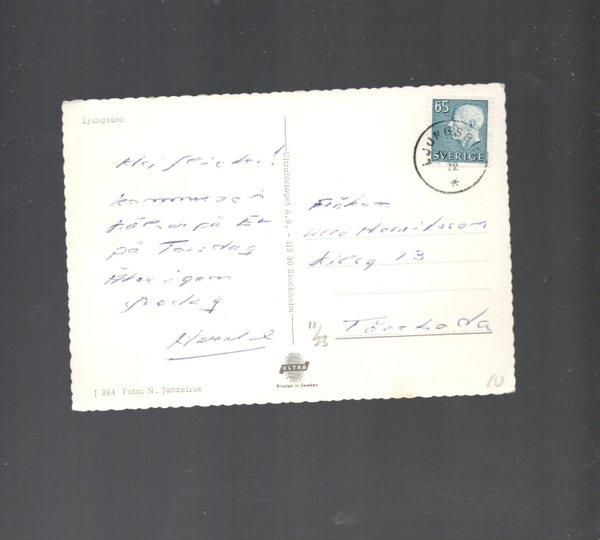 Ljungsbro
Hej flickor!
kommer och
hälsar på Er
på Torsdag
Åker igen
fredag
65
SVERIGE
LJUNGSBRO
72
*
Fröken
Ulla Henriksson
13
Töreboda
11/33
Ultraförlaget A.B. - 113 30 Stockholm
ULTRA
Printed in Sweden
J 384 Foto: N. Janzelius
10